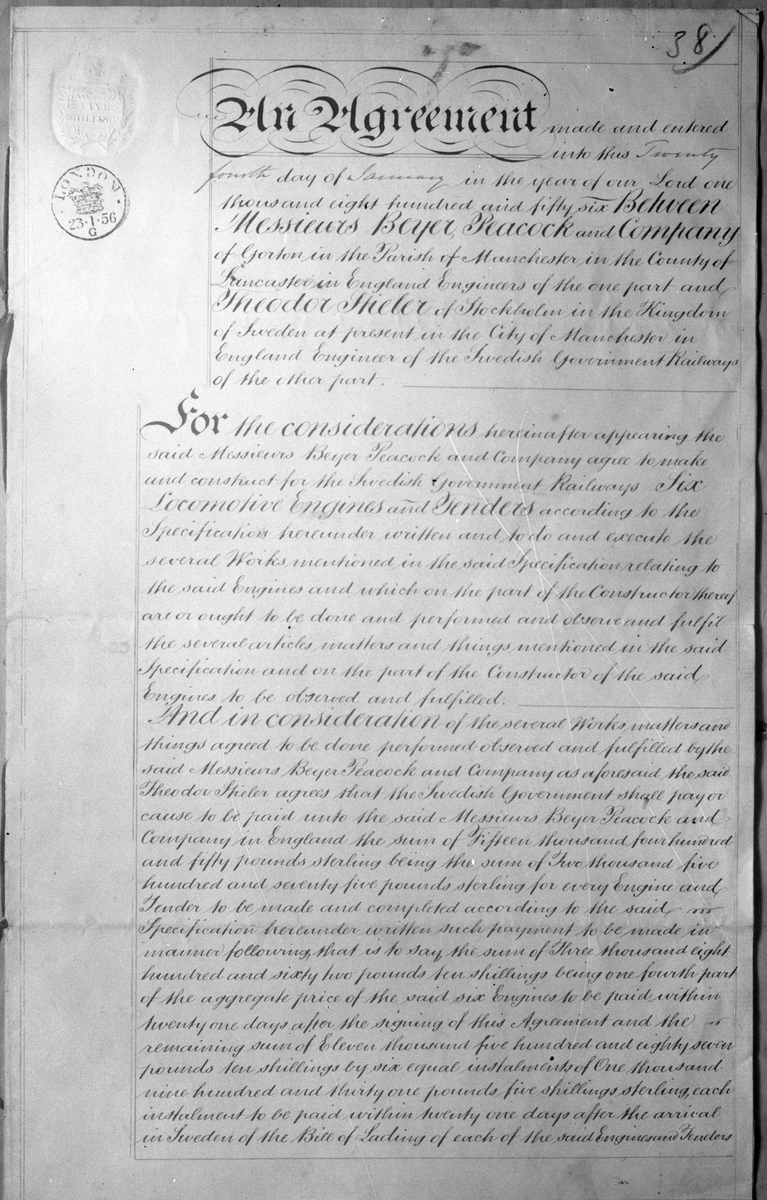 38
FIVE
SHILLINGS
LONDON
23·1·56
G
An Agreement made and entered
into this Twenty
fourth day of January in the year of our Lord one
thousand eight hundred and fifty six Between
Messieurs Beyer, Peacock and Company
of Gorton in the Parish of Manchester in the County of
Lancaster in England Engineers of the one part and
Theodor Stieler of Stockholm in the Kingdom
of Sweden at present in the City of Manchester in
England Engineer of the Swedish Government Railways
of the other part.
For the considerations hereinafter appearing the
said Messieurs Beyer Peacock and Company agree to make
and construct for the Swedish Government Railways Six
Locomotive Engines and Tenders according to the
Specification hereunder written and to do and execute the
several Works mentioned in the said Specification relating to
the said Engines and which on the part of the Constructor thereof
are or ought to be done and performed and observe and fulfil
the several articles, matters and things mentioned in the said
Specification and on the part of the Constructor of the said
Engines to be observed and fulfilled.
And in consideration of the several Works, matters and
things agreed to be done performed observed and fulfilled by the
said Messieurs Beyer Peacock and Company as aforesaid the said
Theodor Stieler agrees that the Swedish Government shall pay or
cause to be paid unto the said Messieurs Beyer Peacock and
Company in England the sum of Fifteen thousand four hundred
and fifty pounds sterling being the sum of Two thousand five
hundred and seventy five pounds sterling for every Engine and
Tender to be made and completed according to the said
Specification hereunder written such payment to be made in
manner following, that is to say, the sum of Three thousand eight
hundred and sixty two pounds ten shillings being one fourth part
of the aggregate price of the said six Engines to be paid within
twenty one days after the signing of this Agreement and the
remaining sum of Eleven thousand five hundred and eighty seven
pounds ten shillings by six equal instalments of One thousand
nine hundred and thirty one pounds five shillings sterling, each
instalment to be paid within twenty one days after the arrival
in Sweden of the Bill of Lading of each of the said Engines and Tenders